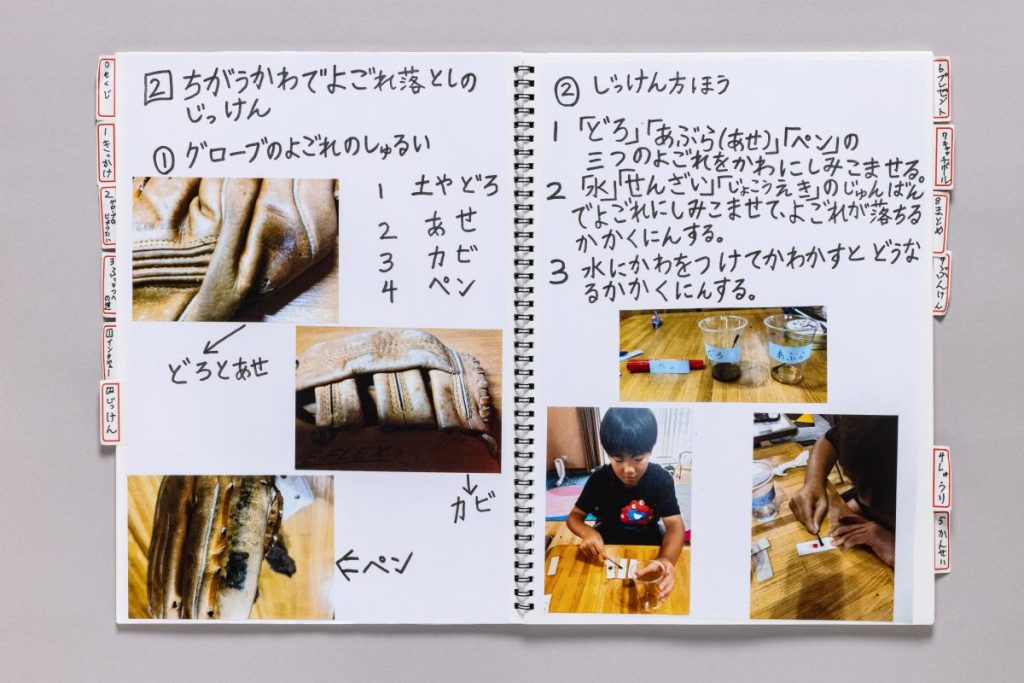 2 ちがうかわでよごれ落としの
じっけん
① グローブのよごれのしゅるい
1 土やどろ
2 あせ
3 カビ
4 ペン
どろとあせ
カビ
ペン
② じっけん方ほう
1 「どろ」「あぶら(あせ)」「ペン」の
三つのよごれをかわにしみこませる。
2 「水」「せんざい」「じょこうえき」のじゅんばん
でよごれにしみこませて、よごれが落ちる
かかくにんする。
3 水にかわをつけてかわかすと どうな
るかかくにんする。
どろ
あぶら
0 もくじ
1 きっかけ
2 グローブの
1 インタビュー
2 じっけん
6 プレゼント
7 キャッチボール
8 まとめ
4 しゅうり
5 かんせい